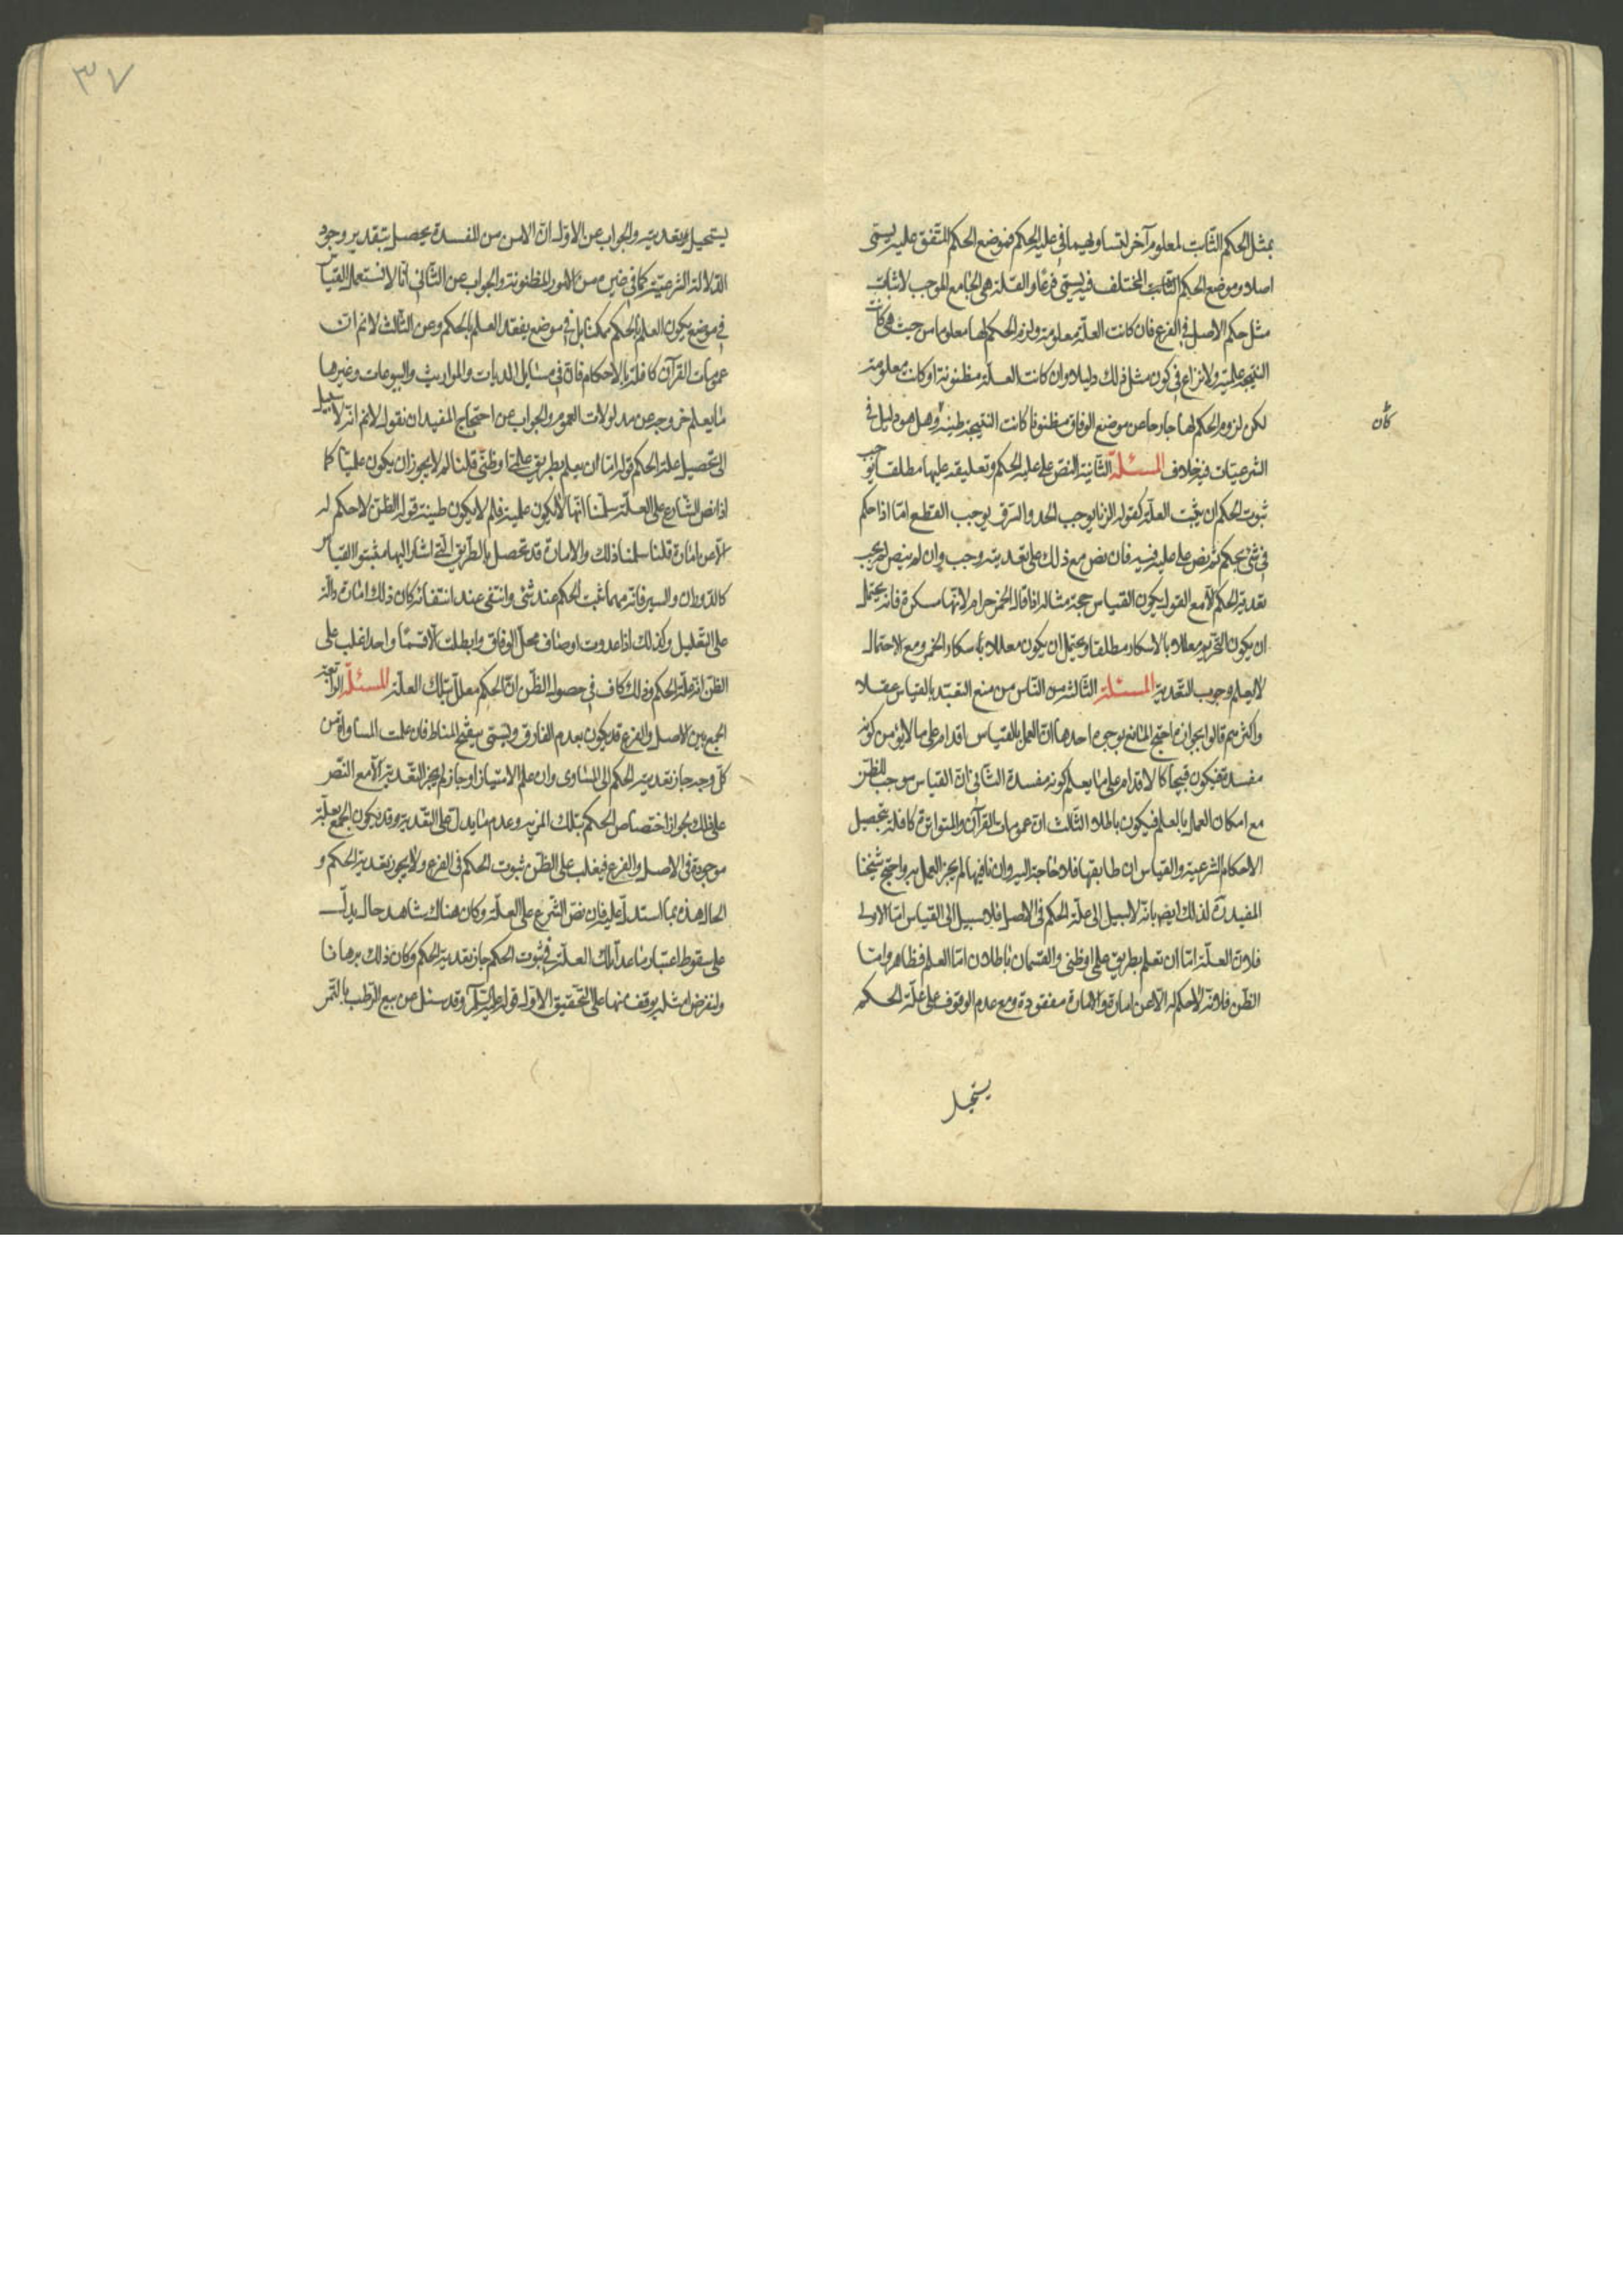 بمثل الحكم الثابت لمعلوم آخر لتساويهما في علة الحكم فموضع الحكم المتفق عليه يسمى
اصلا وموضع الحكم الثابت المختلف فيه يسمى فرعا والعلة هى الجامع الموجب لاثبات
مثل حكم الاصل فى الفرع فان كانت العلة معلومة ولزوم الحكم لها معلوما من حيث هى كانت
النتيجة علمية ولا نزاع فى كون مثل ذلك دليلا وان كانت العلة مظنونة او كانت معلومة
لكن لزوم الحكم لها خارجا عن موضع الوفاق مظنونا كانت النتيجة ظنية وهل هو دليل فى
كان
الشرعيات فيه خلاف المسئلة الثانية النص على علة الحكم وتعليقه عليها مطلقا يوجب
ثبوت الحكم ان ثبتت العلة كقوله الزنا يوجب الحد والسرق يوجب القطع اما اذا حكم
فى شئ بحكم ثم نص على علته فيه فان نص مع ذلك على تعديته وجب وان لم ينص لم يجب
تعدية الحكم الا مع القول بكون القياس حجة مثاله اذا قال الخمر حرام لانها مسكرة فانه يحتمل
ان يكون التحريم معللا بالاسكار مطلقا ويحتمل ان يكون معللا باسكار الخمر ومع الاحتمال
لا يعلم وجوب التعدية المسئلة الثالثة من الناس من منع التعبد بالقياس عقلا
واكثرهم قالوا بجوازه احتج المانع بوجوه احدها ان العمل بالقياس اقدام على ما لا يؤمن كونه
مفسدة فيكون قبيحا كالاقدام على ما يعلم كونه مفسدة الثانى ان القياس موجب للظن
مع امكان العمل بالعلم فيكون باطلا الثالث ان عمومات القرآن والمتواترة كافلة بتحصيل
الاحكام الشرعية والقياس ان طابقها فلا حاجة اليه وان نافيها لم يجز العمل به واحتج شيخنا
المفيد ره لذلك ايضا بانه لا سبيل الى علة الحكم فى الاصل فلا سبيل الى القياس اما الاولى
فلان العلة اما ان تعلم بطريق علمى او ظنى والقسمان باطلان اما العلم فظاهر واما
الظن فلانه لا حكم له الا عن امارة والامارة مفقودة ومع عدم الوقوف على علة الحكم
يستحيل
٣٧
يستحيل تعديته والجواب عن الاول ان الامن من المفسدة يحصل بتقدير وجود
الدلالة الشرعية كما فى غيره من الامور المظنونة والجواب عن الثانى انا لا نستعمل القياس
فى موضع يكون العلم بالحكم ممكنا بل فى موضع يفقد العلم بالحكم وعن الثالث لا نم ان
عمومات القرآن كافلة بالاحكام فان فى مسايل الديات والمواريث والبيوعات وغيرها
ما يعلم خروجه عن مدلولات العموم والجواب عن احتجاج المفيد ان نقول لا نم انه لا سبيل
الى تحصيل علة الحكم قوله اما ان يعلم بطريق علمى او ظنى قلنا لم لا يجوز ان يكون علميا كما
اذا نص الشارع على العلة سلمنا انها لا يكون علمية فلم لا يكون ظنية قوله الظن لا حكم له
الا عن امارة قلنا سلمنا ذلك والامارة قد تحصل بالطريق التى اشار اليها مثبتوا القياس
كالدوران والسبر فانه مهما ثبت الحكم عند شئ وانتفى عند انتفائه كان ذلك امارة دالة
على التعليل وكذلك اذا عددت اوصاف محل الوفاق وابطلت الا قسما واحدا غلب على
الظن انه علة الحكم وذلك كاف فى حصول الظن ان الحكم معلل بتلك العلة المسئلة الرابعة
الجمع بين الاصل والفرع قد يكون بعدم الفارق ويسمى بتنقيح المناط فان علمت المساواة من
كل وجه جاز تعدية الحكم الى المساوى وان علم الامتياز او جاز لم يجز التعدية الا مع النص
على ذلك لجواز اختصاص الحكم بتلك المزية وعدم ما يدل على التعدية وقد يكون الجمع بعلة
موجودة فى الاصل والفرع فيغلب على الظن ثبوت الحكم فى الفرع ولا يجوز تعدية الحكم و
الحال هذه بما استدل عليه فان نص الشرع على العلة وكان هناك شاهد حال يدل
على سقوط اعتبار ما عدا تلك العلة فى ثبوت الحكم جاز تعدية الحكم وكان ذلك برهانا
ولنفرض امثلة يوقف منها على التحقيق الاول قوله عليه السلام وقد سئل عن بيع الرطب بالتمر